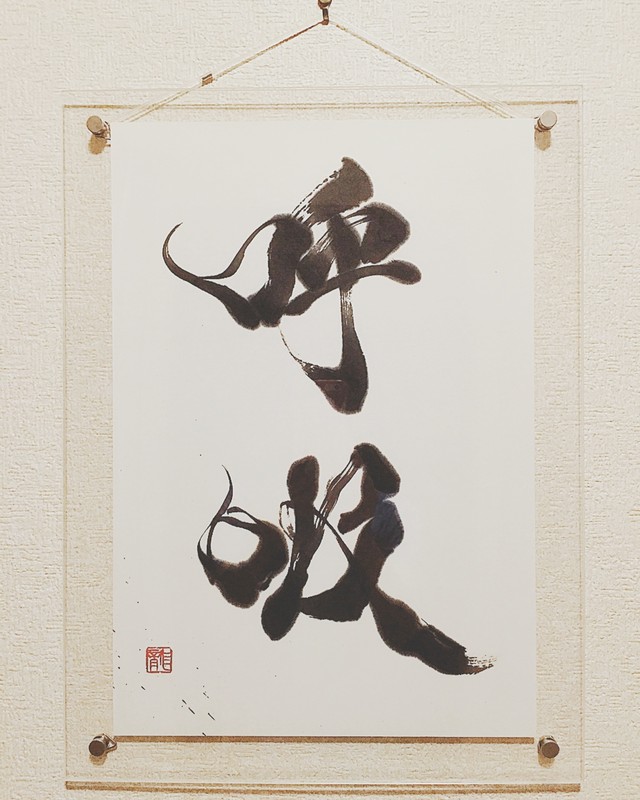 呼
吸
龍